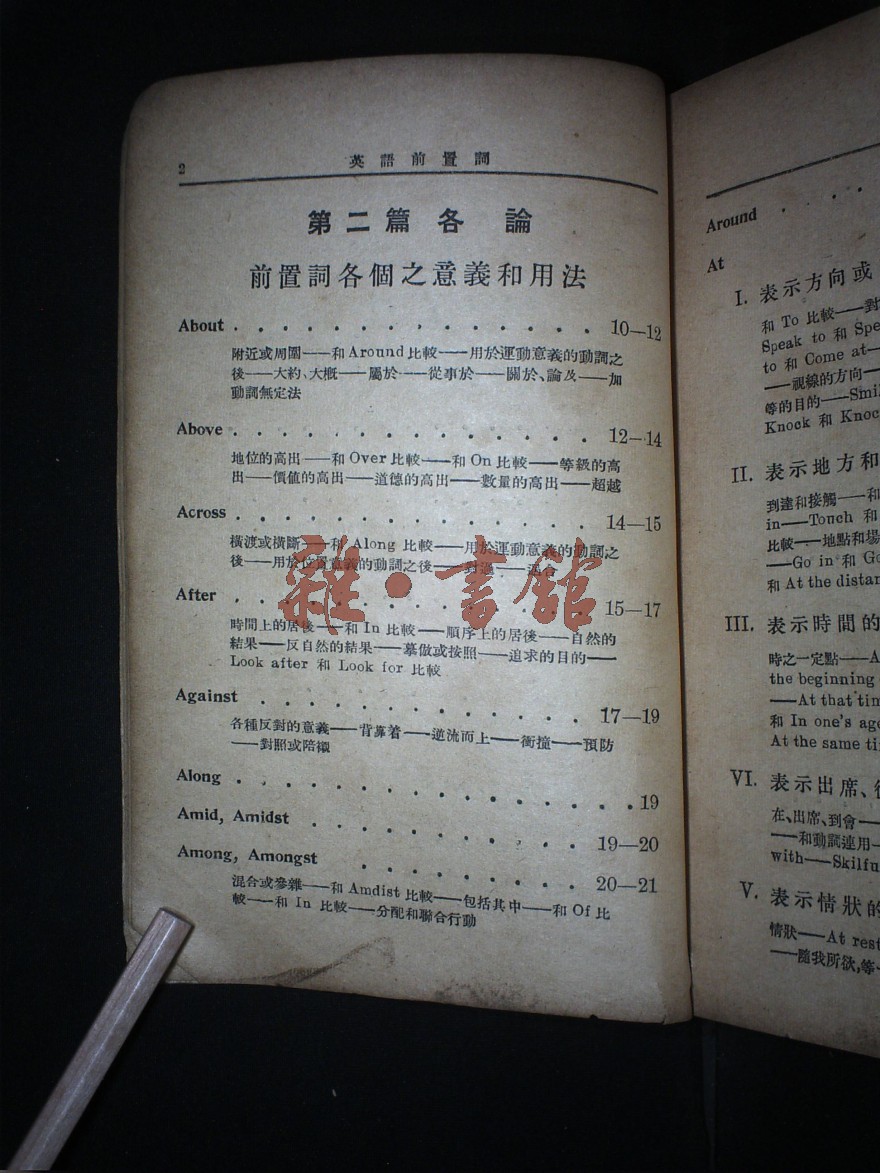 2
英語前置詞
第二篇 各論
前置詞各個之意義和用法
About 10—12
附近或周圍——和 Around 比較——用於運動意義的動詞之
後——大約、大概——屬於——從事於——關於、論及——加
動詞無定法
Above 12—14
地位的高出——和 Over 比較——和 On 比較——等級的高
出——價值的高出——道德的高出——數量的高出——超越
Across 14—15
橫渡或橫斷——和 Along 比較——用於運動意義的動詞之
後——用於位置意義的動詞之後——對過——
After 15—17
時間上的居後——和 In 比較——順序上的居後——自然的
結果——反自然的結果——摹倣或按照——追求的目的——
Look after 和 Look for 比較
Against 17—19
各種反對的意義——背靠着——逆流而上——衝撞——預防
——對照或陪襯
Along 19
Amid, Amidst 19—20
Among, Amongst 20—21
混合或參雜——和 Amdist 比較——包括其中——和 Of 比
較——和 In 比較——分配和聯合行動
雜·書館
Around
At
I. 表示方向或
和 To 比較——對
Speak to 和 Spe
to 和 Come at—
——視線的方向—
等的目的——Smi
Knock 和 Knoc
II. 表示地方和
到達和接觸——和
in——Touch 和
比較——地點和場
——Go in 和 Go
和 At the distan
III. 表示時間的
時之一定點——A
the beginning
——At that tim
和 In one's age
At the same ti
VI. 表示出席、
在、出席、到會——
——和動詞連用—
with——Skilfu
V. 表示情狀的
情狀——At rest
——隨我所欲,等—